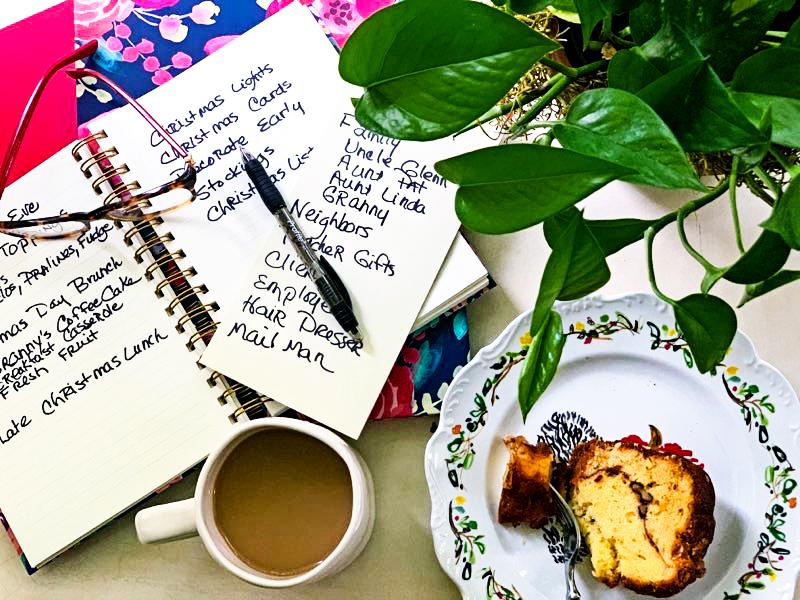 Eve
TOPPINGS
PRALINES, Fudge
mas Day Brunch
Granny's Coffee Cake
Breakfast Casserole
Fresh Fruit
Late Christmas Lunch
Christmas Lights
Christmas Cards
Decorate Early
Stockings
Christmas List
Family
Uncle Glenn
Aunt Pat
Aunt Linda
Granny
Neighbors
Teacher Gifts
Clien
Employee
Hair Dresser
Mail Man